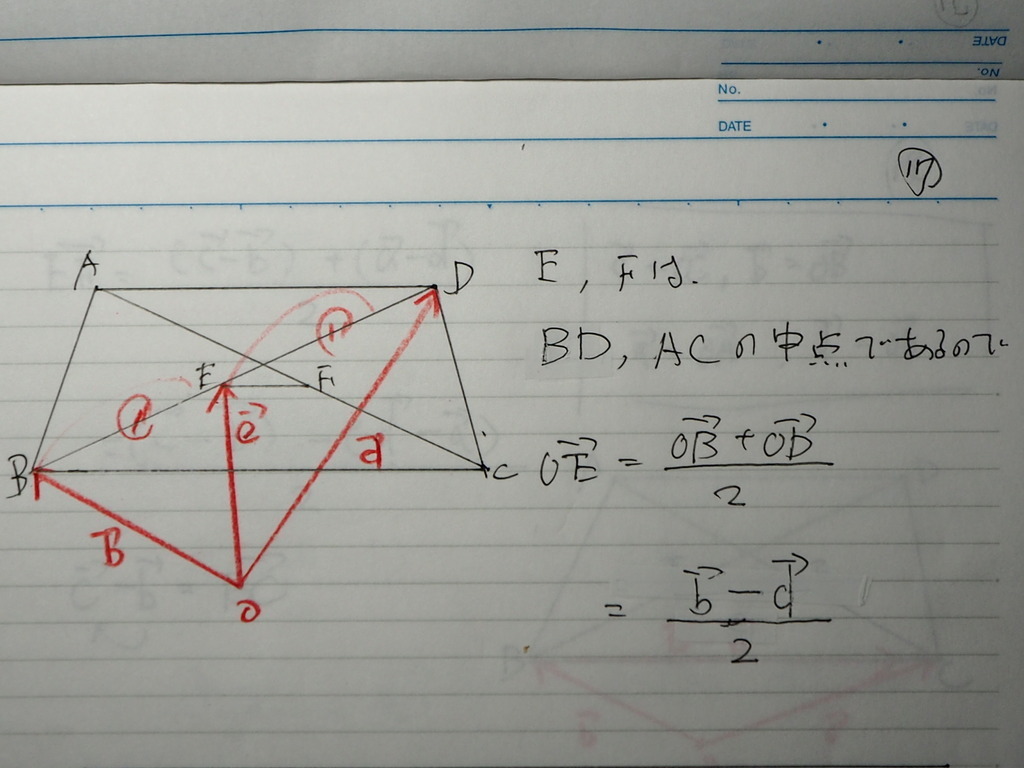 DATE
No.
No.
DATE
A
D
E
F
B
C
①
①
e
d
b
O
E, Fは.
BD, ACの中点であるので
OE = OB + OD / 2
= b - d / 2